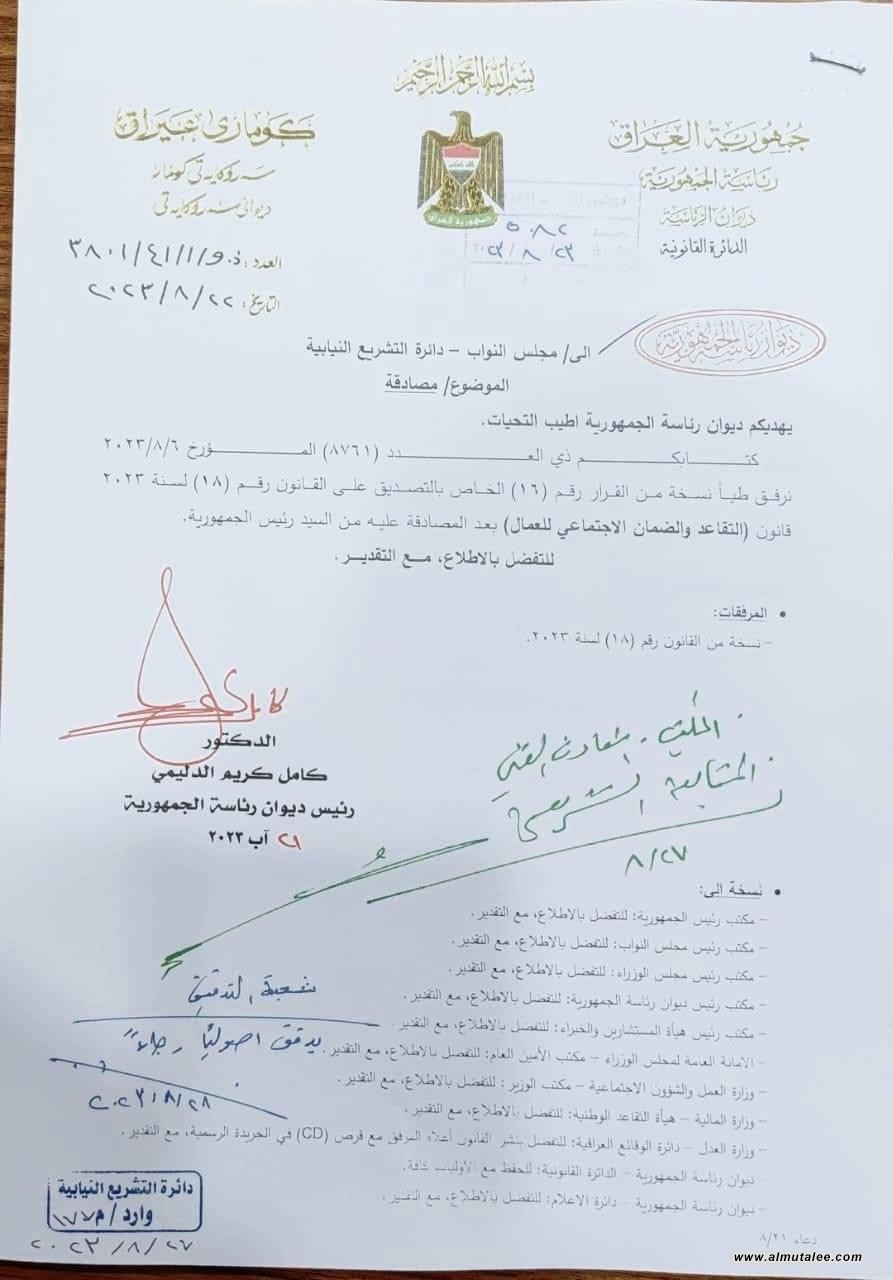 بسم الله الرحمن الرحيم
جمهورية العراق
رئاسة الجمهورية
ديوان الرئاسة
الدائرة القانونية
كوماری عیراق
سەروکایەتی کومار
دیوانی سەروکایەتی
جمهورية العراق
٥٠٨٢
٢٠٢٣/٨/٢٣
العدد: ذ.و/١/٤١/٣٨٠١
التاريخ: ٢٠٢٣/٨/٢٢
ديوان رئاسة الجمهورية
الى/ مجلس النواب – دائرة التشريع النيابية
الموضوع/ مصادقة
يهديكم ديوان رئاسة الجمهورية اطيب التحيات.
كتابكم ذي العدد (٨٧٦١) المؤرخ ٢٠٢٣/٨/٦
نرفق طياً نسخة من القرار رقم (١٦) الخاص بالتصديق على القانون رقم (١٨) لسنة ٢٠٢٣
قانون (التقاعد والضمان الاجتماعي للعمال) بعد المصادقة عليه من السيد رئيس الجمهورية.
للتفضل بالاطلاع، مع التقدير.
• المرفقات:
– نسخة من القانون رقم (١٨) لسنة ٢٠٢٣.
الدكتور
كامل كريم الدليمي
رئيس ديوان رئاسة الجمهورية
٢١ آب ٢٠٢٣
٨/٢٧
• نسخة الى:
– مكتب رئيس الجمهورية: للتفضل بالاطلاع، مع التقدير.
– مكتب رئيس مجلس النواب: للتفضل بالاطلاع، مع التقدير.
– مكتب رئيس مجلس الوزراء: للتفضل بالاطلاع، مع التقدير.
– مكتب رئيس ديوان رئاسة الجمهورية: للتفضل بالاطلاع، مع التقدير.
– مكتب رئيس هيأة المستشارين والخبراء: للتفضل بالاطلاع، مع التقدير.
– الأمانة العامة لمجلس الوزراء – مكتب الأمين العام: للتفضل بالاطلاع، مع التقدير.
– وزارة العمل والشؤون الاجتماعية – مكتب الوزير: للتفضل بالاطلاع، مع التقدير.
– وزارة المالية – هيأة التقاعد الوطنية: للتفضل بالاطلاع، مع التقدير.
– وزارة العدل – دائرة الوقائع العراقية: للتفضل بنشر القانون أعلاه المرفق مع قرص (CD) في الجريدة الرسمية، مع التقدير.
– ديوان رئاسة الجمهورية – الدائرة القانونية: للحفظ مع الأوليات كافة.
– ديوان رئاسة الجمهورية – دائرة الاعلام: للتفضل بالاطلاع، مع التقدير.
شعبة التدقيق
يدقق اصولياً رجاءً
٢٠٢٣/٨/٢٨
دائرة التشريع النيابية
وارد/م ١٧٧
٢٠٢٣/٨/٢٧
دعاء ٨/٢١
www.almutalee.com